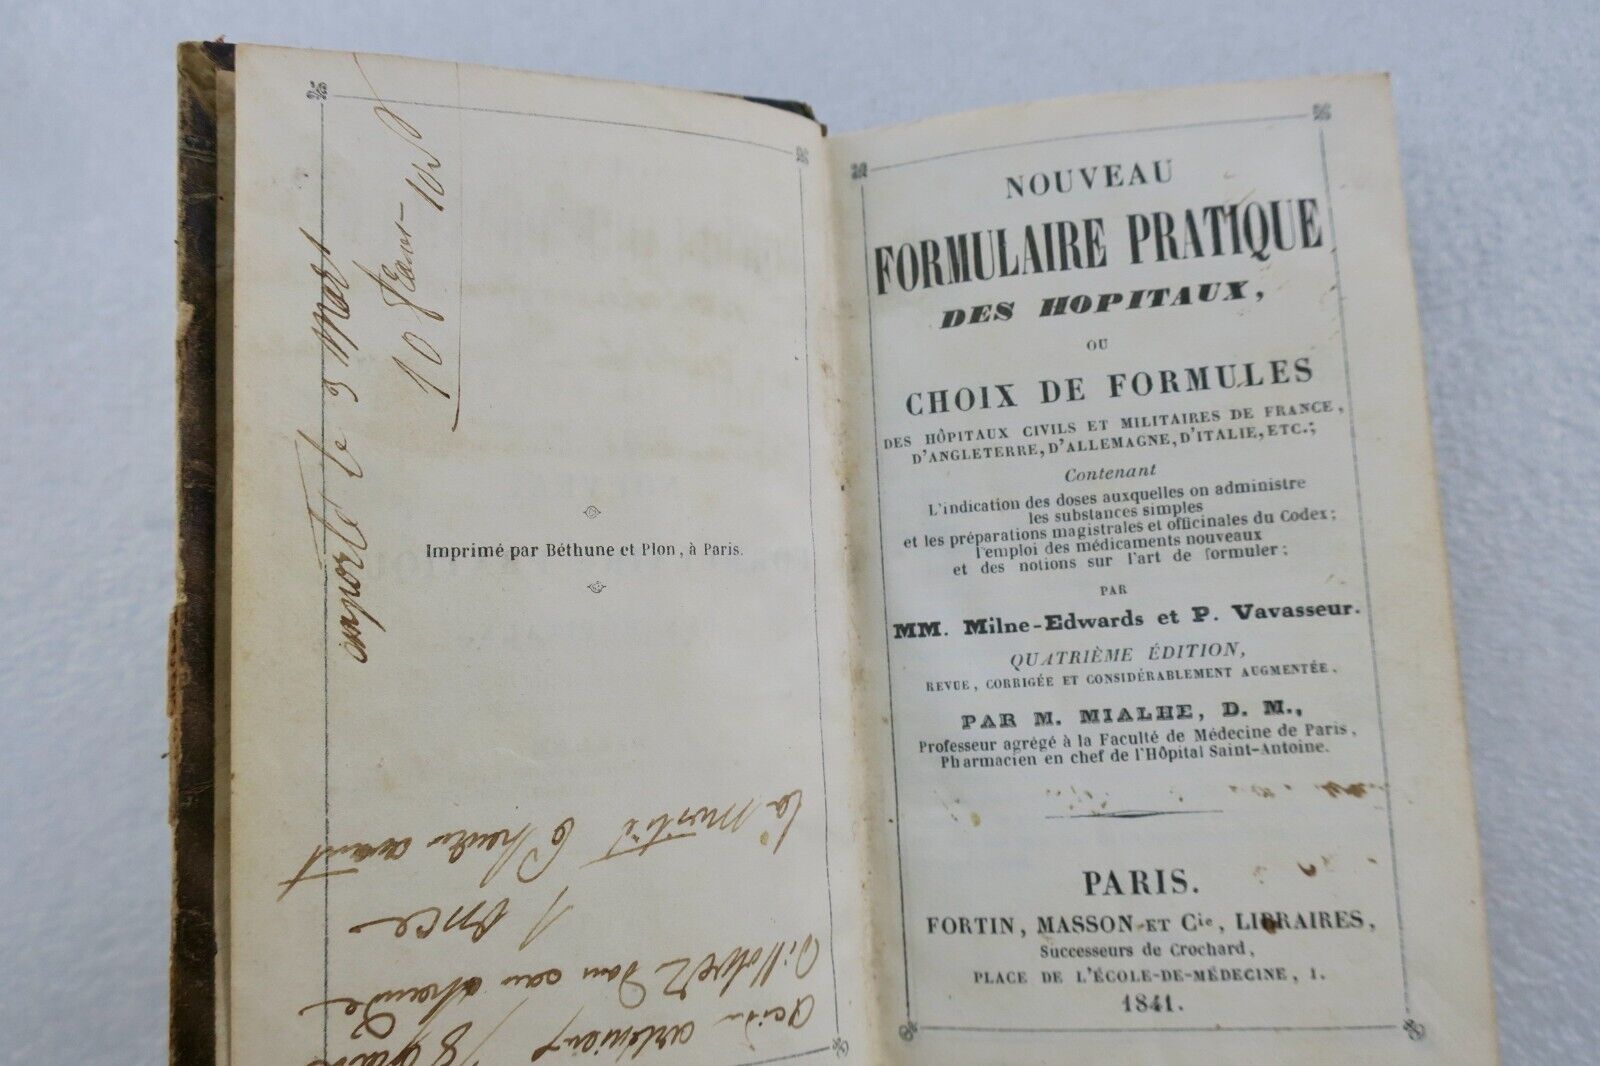 emporté le 3 Mars
10 francs
Imprimé par Béthune et Plon, à Paris.
acide arsénieux
dissolvez dans eau
1 once
la moitié 6 heures avant
NOUVEAU
FORMULAIRE PRATIQUE
DES HOPITAUX,
OU
CHOIX DE FORMULES
DES HÔPITAUX CIVILS ET MILITAIRES DE FRANCE,
D'ANGLETERRE, D'ALLEMAGNE, D'ITALIE, ETC.;
Contenant
L'indication des doses auxquelles on administre
les substances simples
et les préparations magistrales et officinales du Codex;
l'emploi des médicaments nouveaux
et des notions sur l'art de formuler;
PAR
MM. Milne-Edwards et P. Vavasseur.
QUATRIÈME ÉDITION,
REVUE, CORRIGÉE ET CONSIDÉRABLEMENT AUGMENTÉE,
PAR M. MIALHE, D. M.,
Professeur agrégé à la Faculté de Médecine de Paris,
Pharmacien en chef de l'Hôpital Saint-Antoine.
PARIS.
FORTIN, MASSON ET Cie, LIBRAIRES,
Successeurs de Crochard,
PLACE DE L'ÉCOLE-DE-MÉDECINE, 1.
1841.